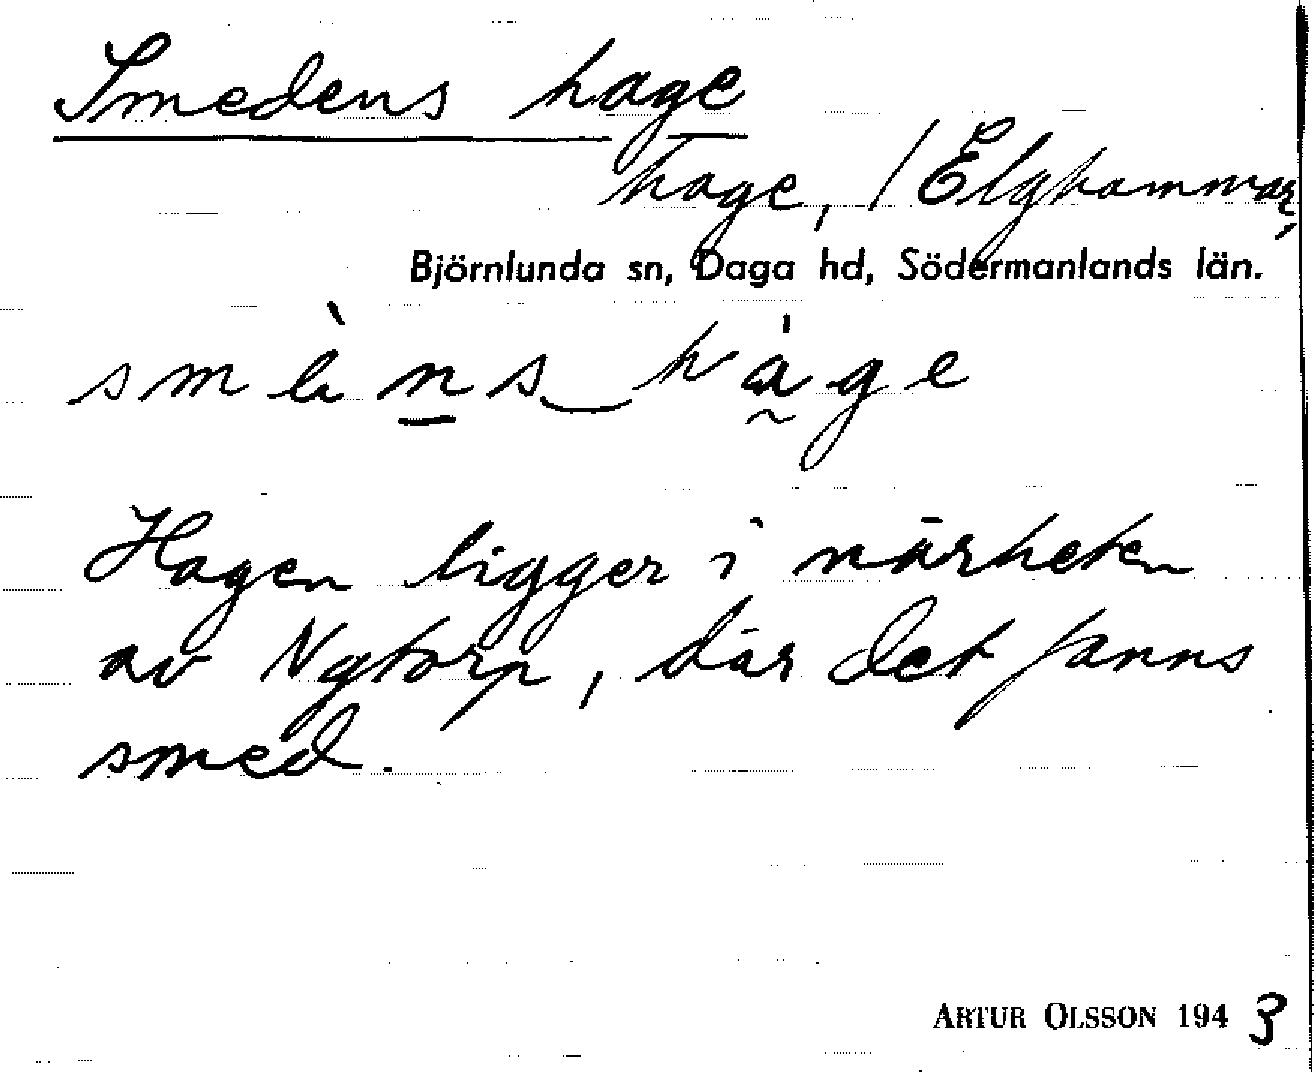 Smedens hage
hage, / Elghammar,
Björnlunda sn, Daga hd, Södermanlands län.
smèns hage
Hagen ligger i närheten
av Nytorp, där det fanns
smed.
ARTUR OLSSON 1943